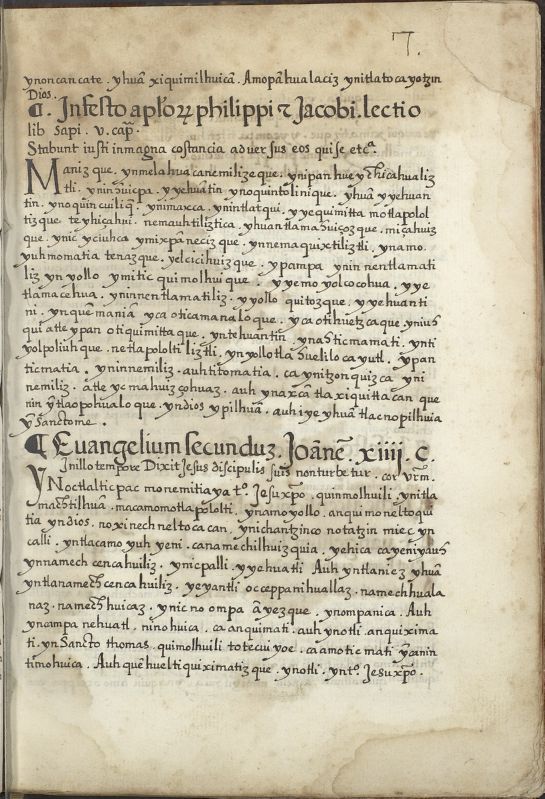 7.
ynoncan cate. yhuā xiquimilhuicā. Amo pā hualaciz ynitlatocayotzin
Dios.
¶. In festo aploꝝ philippi ⁊ Jacobi. lectio
lib sapi. v. cap̄.
Stabunt iusti in magna costancia aduersus eos qui se etcᵃ.
Manizque. yn melahuacanemilizeque. yn ipan huey chicahualiz
tli. ynin huicpa. yyehuātin ynoquintolinique. yhuā yyehuan
tin. ynoquincuiliq̄. ynimaxca. yn intlatqui. yyequimitta motlapolol
tizque teyhiçahui. nemauhtiliztica. yhuan tlamahuiçozque. miçahuiz
que. ynic yciuhca ymixpanecizque. ynnemaquixtiliztli. ynamo.
yuh momatia tenazque. yelcicihuizque. ypampa ynin nentlamati
liz ynyollo ymitic quimolhuique. yyemo yolcocohua. yye
tlamacehua. ynin nentlamatiliz. yyollo quitozque. yyehuanti
ni. ynquēmaniā yca oticamanaloque. yca otihuetzcaque yniuh
qui atle ypan otiquimittaque. yn tehuantin. ynastic mamati. ynti
yolpoliuhque. netlapololtiliztli. ynyollotlahuelilocayutl. ypan
ticmatia. ynin nemiliz. auh titomatia. ca ynitzonquizca yni
nemiliz. atle ycmahuizçohuaz. auh ynaxcā tlaxiquittacan que
nin ytlaopohualoque. yndios ypilhuā. auh iye yhuā tlacnopilhuia
y Sanctome.
¶ Euangelium secunduz. Joānē. xiiii. c.
In illo tempore Dixit Jesus discipulis suis non turbetur. cor vr̄m.
YNoc tlalticpac monemitiaya tᵒ. Jesu xp̄o. quinmolhuili ynitla
machtilhuā. macamo motlapololti. ynamoyollo. anquimoneltoqui
tia yndios. no xinechneltocacan. ynichantzinco notatzin miec yn
calli. yntlacamo yuh yeni. ca namechilhuizquia. yehica ca yeniyauh
ynnamechcencahuiliz. ynicpalli. yyehuatli Auh yntlaniez yhuā
yntlanamechcencahuiliz. yeyantli occeppa nihuallaz. namechhuala
naz. namechhuicaz. ynic no ompa āyezque. ynompanica. Auh
yncampa nehuatl. ninohuica. ca anquimati. auh ynotli. anquixima
ti. yn Sancto thomas. quimolhuili totecuiyoe. ca amo ticmati ycanin
timohuica. Auh quē huelti quiximatizque. ynotli. yntᵒ. Jesu xp̄o.